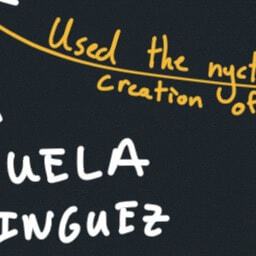 Used the
creation of
UELA
INGUEZ